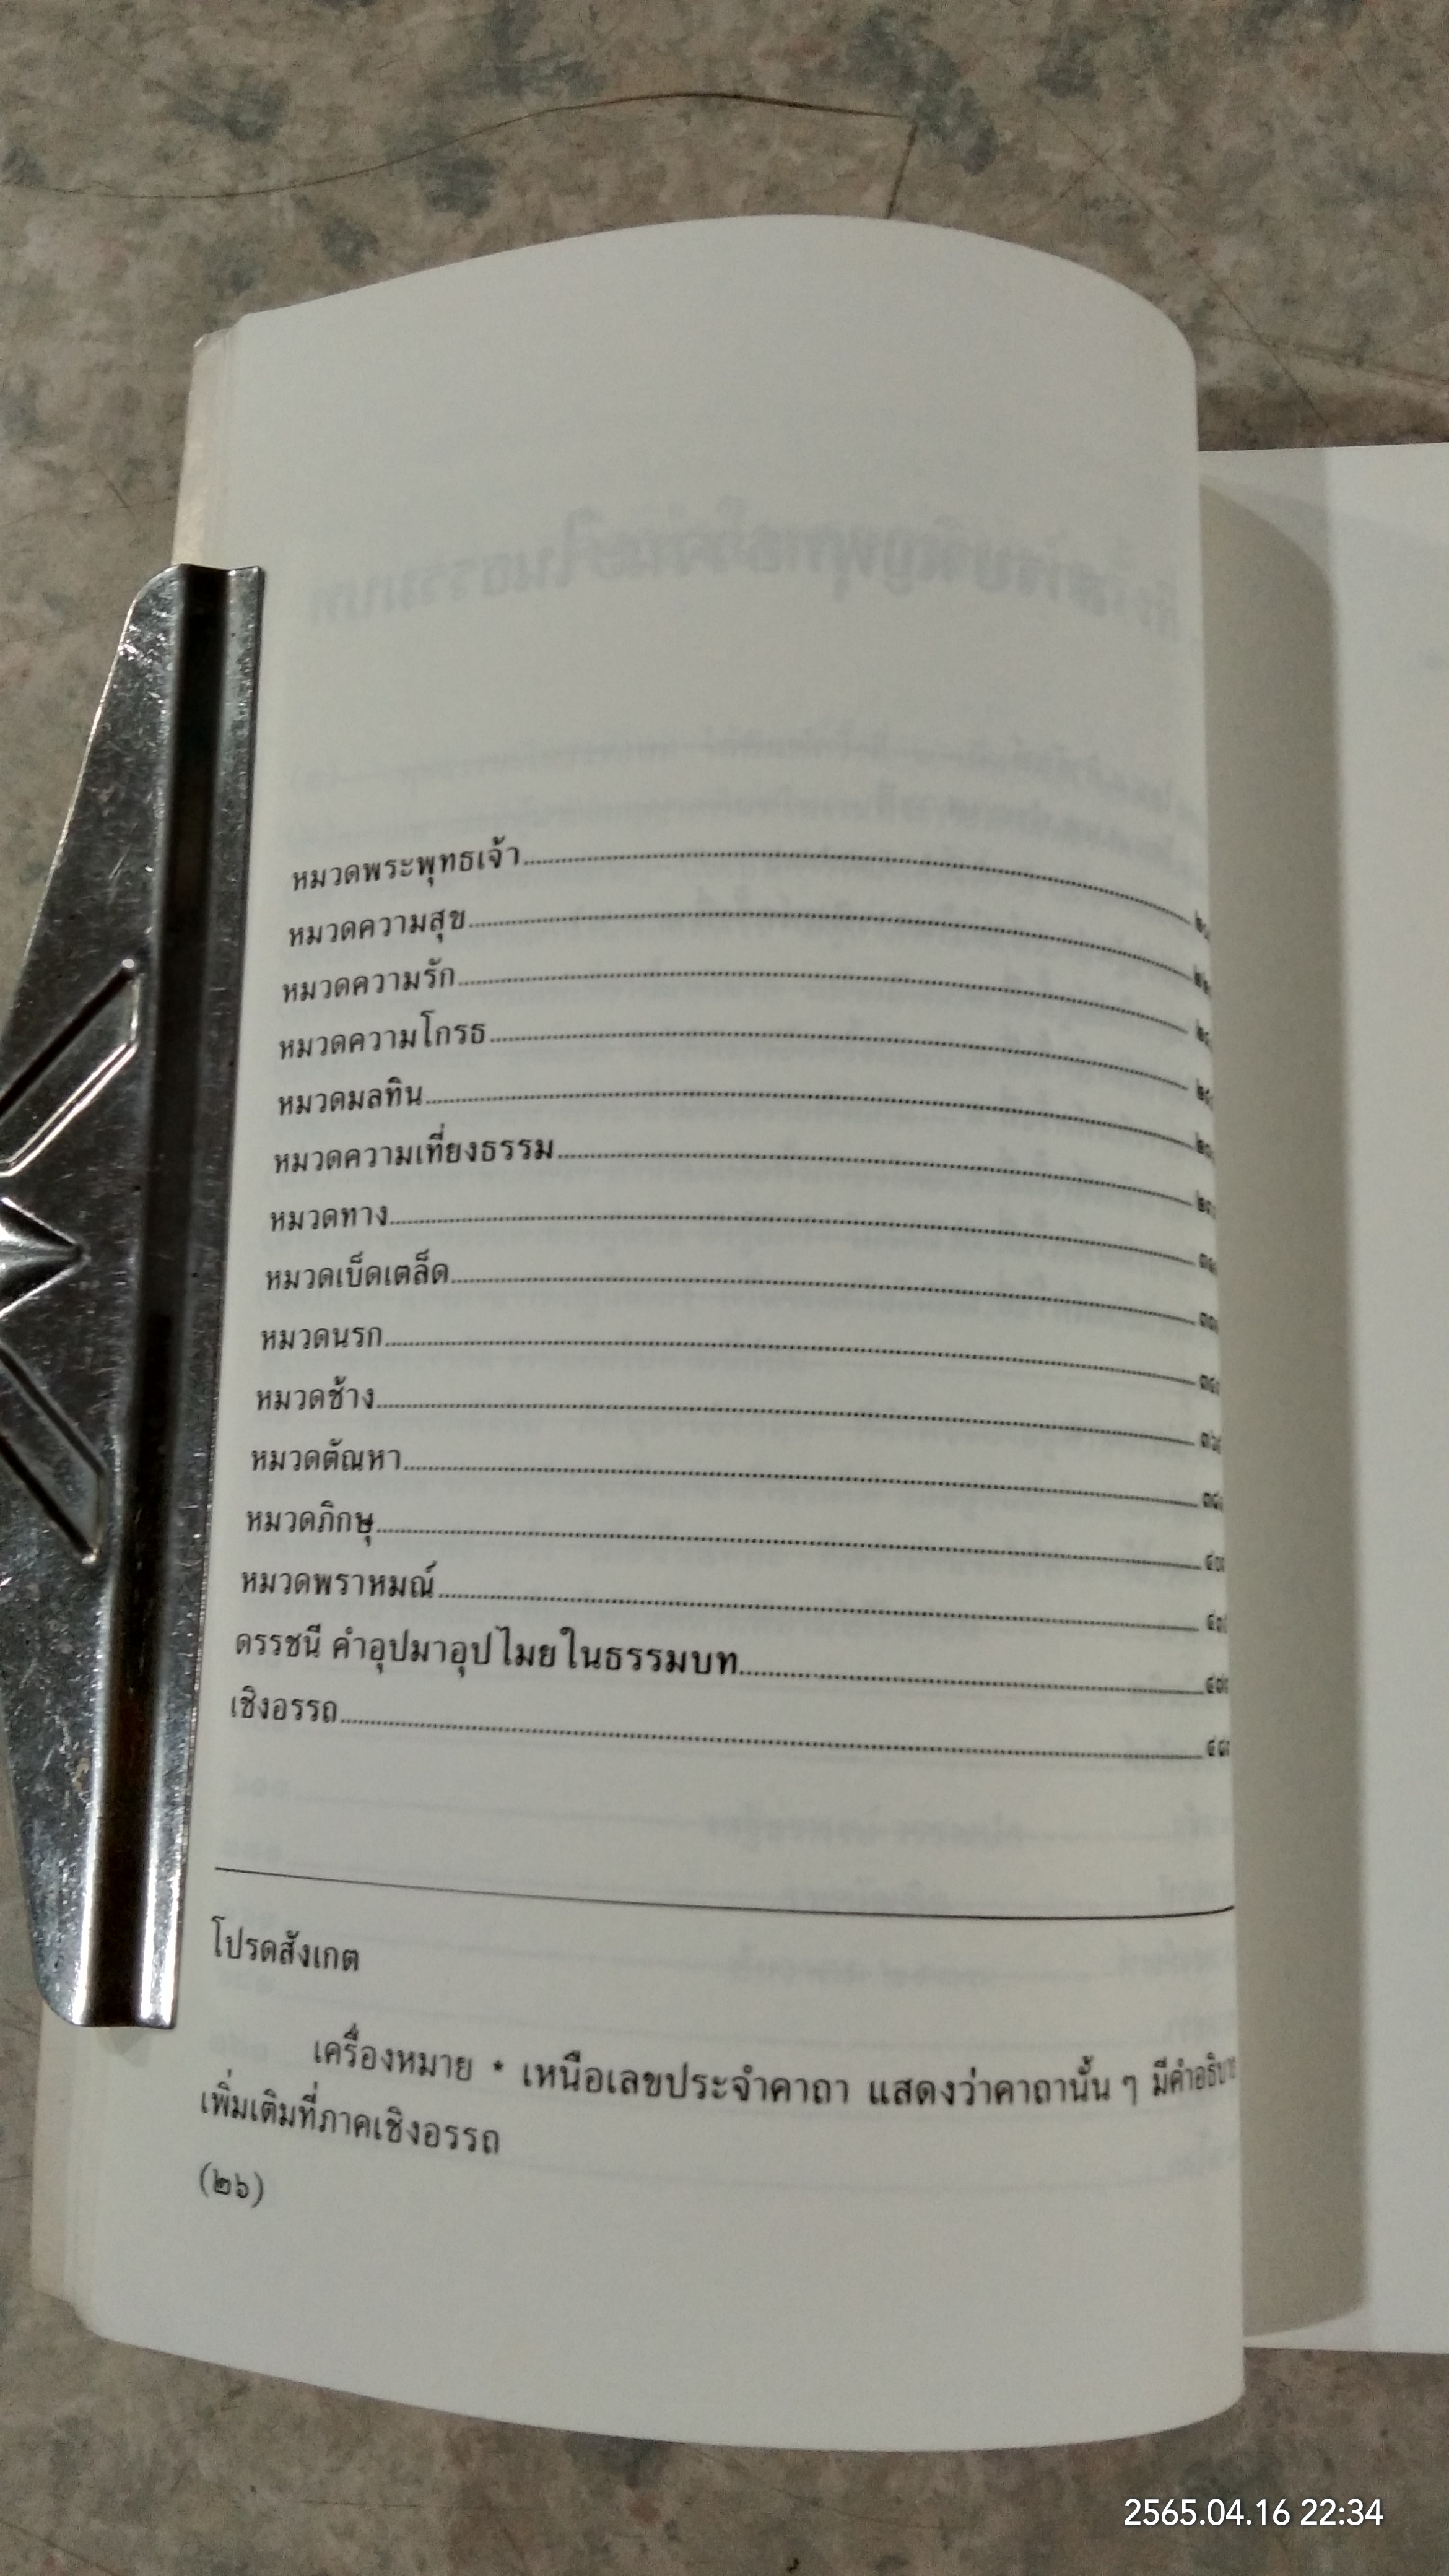 หมวดพระพุทธเจ้า
หมวดความสุข
หมวดความรัก
หมวดความโกรธ
หมวดมลทิน
หมวดความเที่ยงธรรม
หมวดทาง
หมวดเบ็ดเตล็ด
หมวดนรก
หมวดช้าง
หมวดตัณหา
หมวดภิกษุ
หมวดพราหมณ์
ดรรชนี คำอุปมาอุปไมยในธรรมบท
เชิงอรรถ
โปรดสังเกต
เครื่องหมาย * เหนือเลขประจำคาถา แสดงว่าคาถานั้น ๆ
เพิ่มเติมที่ภาคเชิงอรรถ
(๒๖)
2565.04.16 22:34